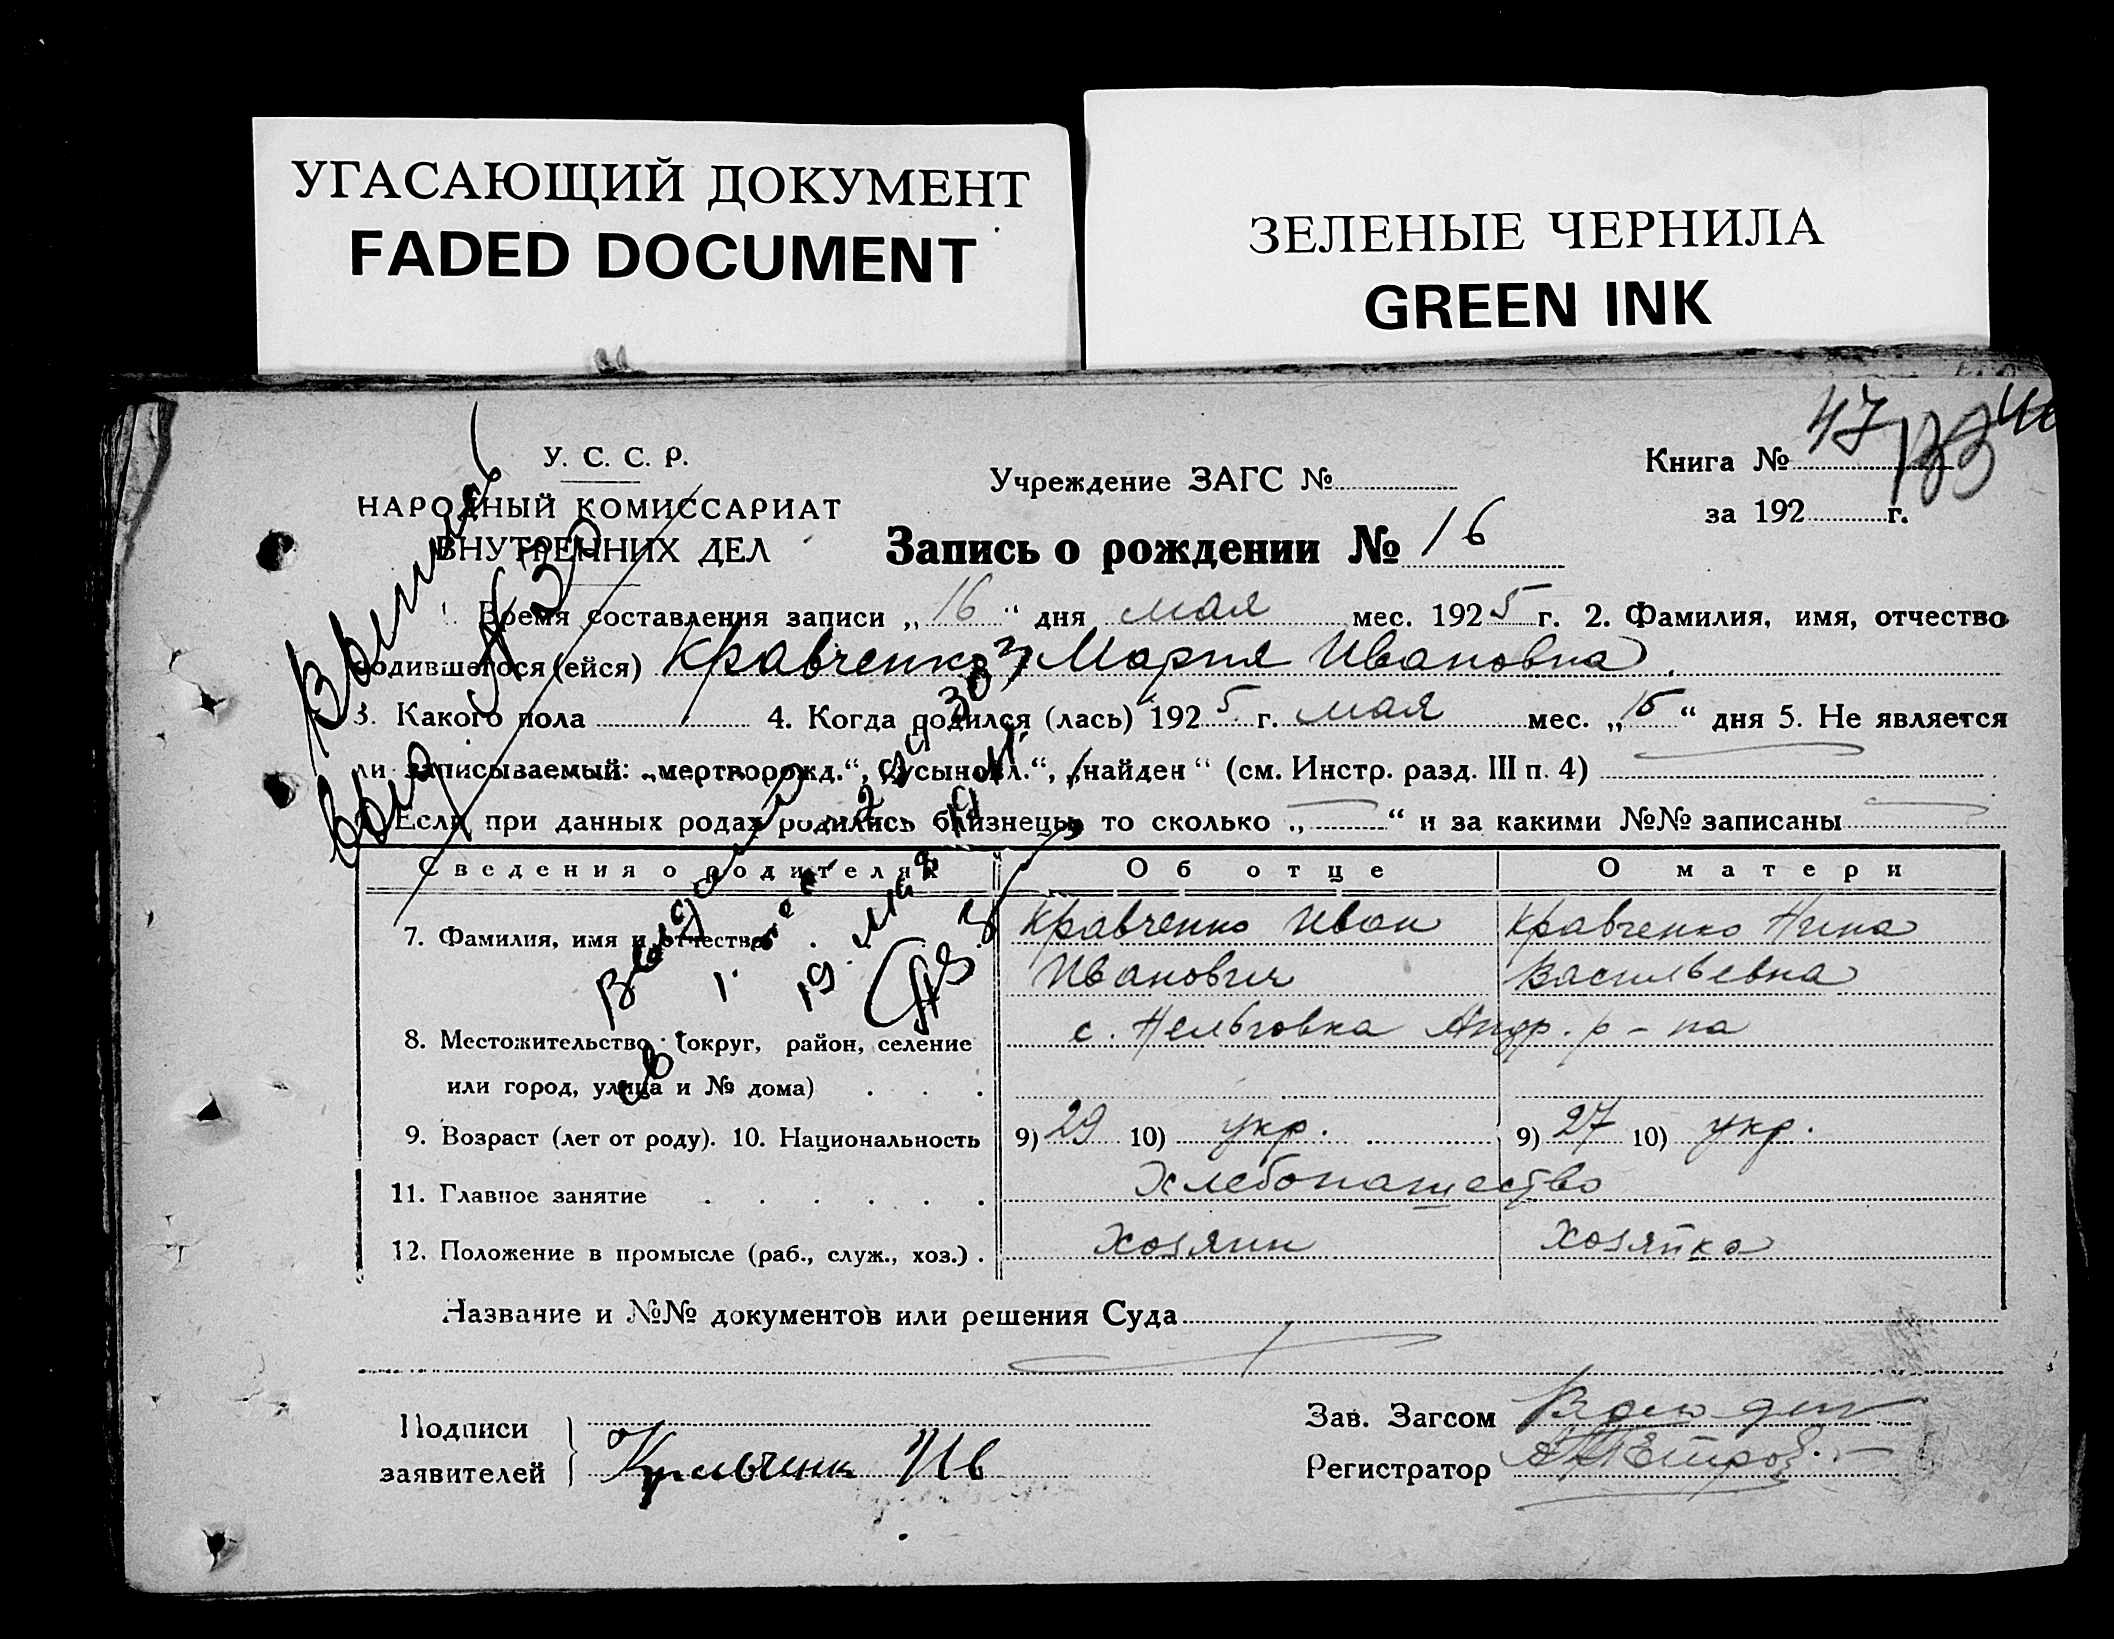 УГАСАЮЩИЙ ДОКУМЕНТ
FADED DOCUMENT
ЗЕЛЕНЫЕ ЧЕРНИЛА
GREEN INK
47
У. С. С. Р.
НАРОДНЫЙ КОМИССАРИАТ
ВНУТРЕННИХ ДЕЛ
Учреждение ЗАГС №
Книга №
за 192 г.
Запись о рождении № 16
Время составления записи „ 16 “ дня мая мес. 1925 г. 2. Фамилия, имя, отчество
родившегося (ейся) Кравченко Мария Ивановна
3. Какого пола 4. Когда родился (лась) 1925 г. мая мес. „15“ дня 5. Не является
ли записываемый: „мертворожд.“, „усыновл.“, „найден“ (см. Инстр. разд. III п. 4)
Если при данных родах родились близнецы, то сколько „ — “ и за какими №№ записаны
Сведения о родителях Об отце О матери
7. Фамилия, имя и отчество Кравченко Иван Кравченко Нина
Иванович Васильевна
8. Местожительство (округ, район, селение с. Нельговка Андр. р-на
или город, улица и № дома)
9. Возраст (лет от роду). 10. Национальность 9) 29 10) укр. 9) 27 10) укр.
11. Главное занятие Хлебопашество
12. Положение в промысле (раб., служ., хоз.) Хозяин Хозяйка
Название и №№ документов или решения Суда
Подписи
заявителей Кравченк Ив
Зав. Загсом
Регистратор